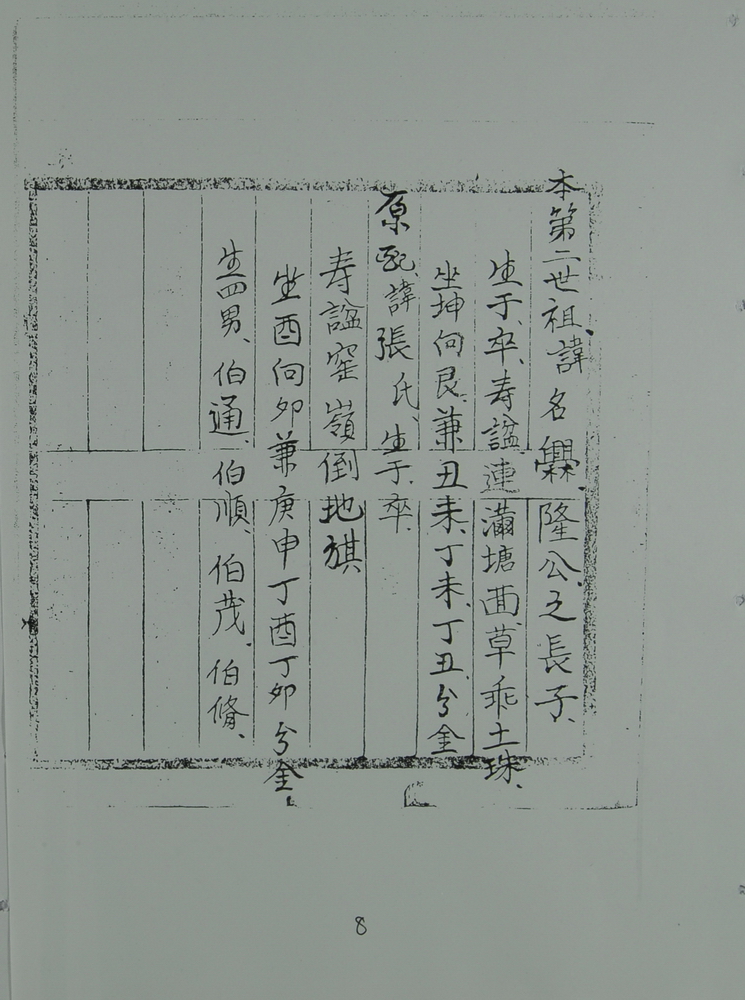 本第二世祖、諱名爨、隆公、之長子、
生于、卒、寿諡連滿塘面草乖土珠、
坐坤向艮、兼丑未、丁未、丁丑、分金
原配、諱張氏、生于、卒、
寿諡窒嶺倒地旗
坐酉向卯兼庚申丁酉丁卯分金、
生四男、伯通、伯順、伯茂、伯脩、
8